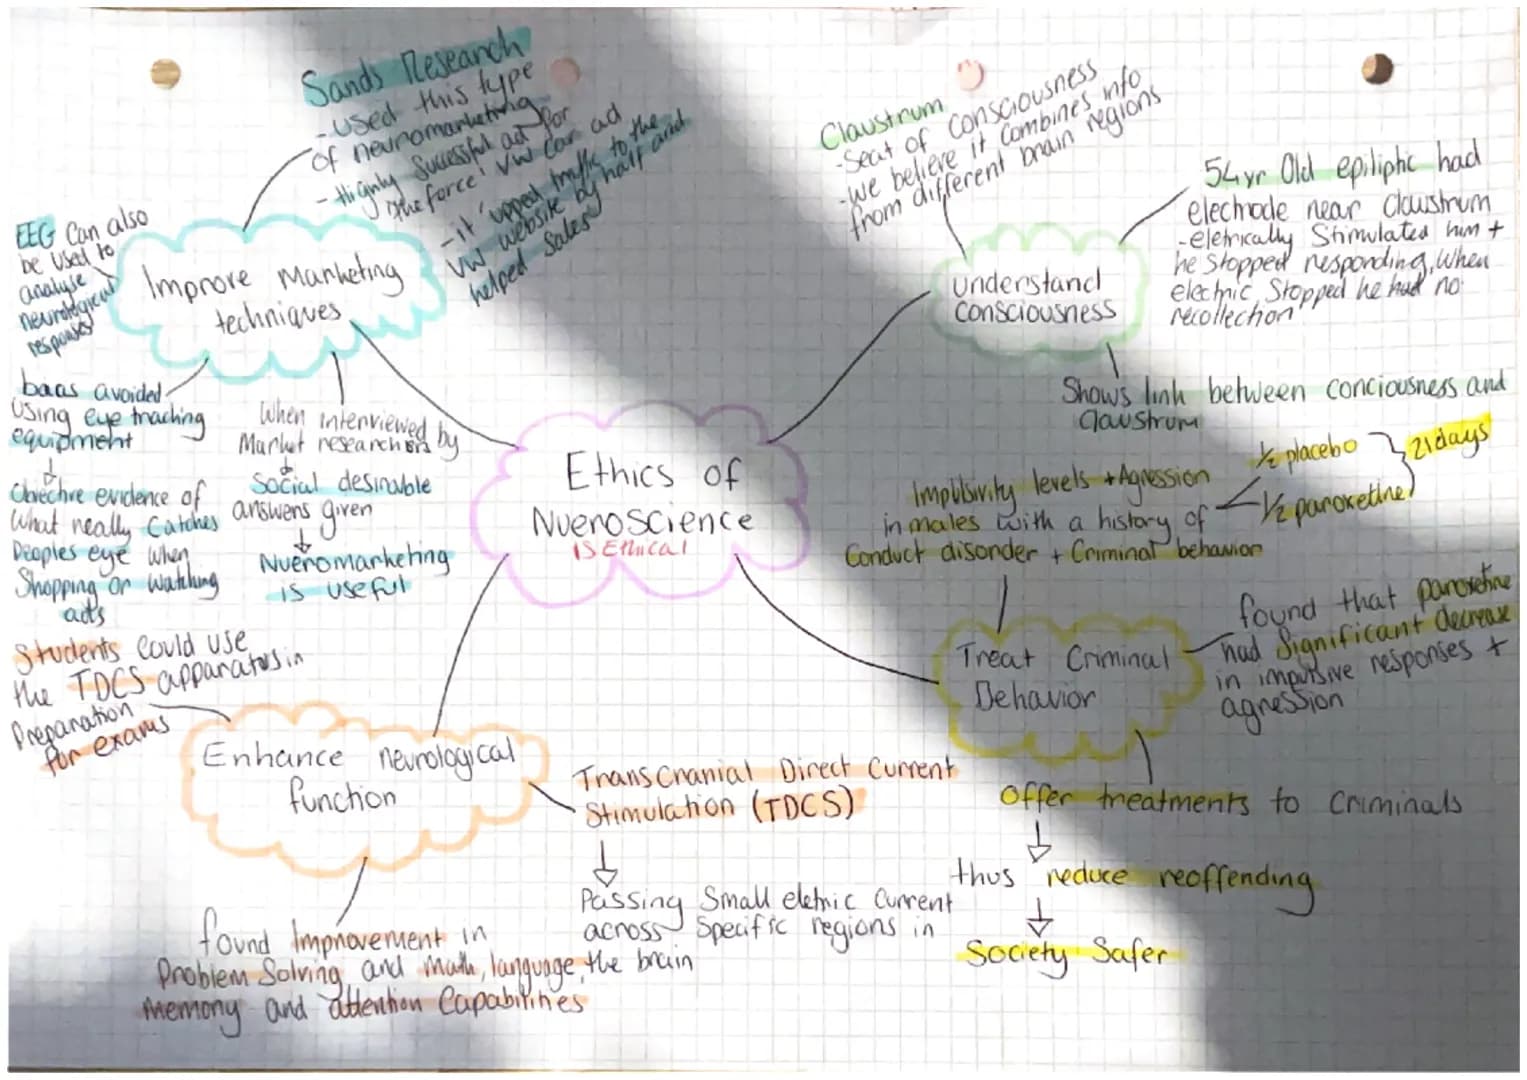 Sands Research
- used this type
of neuromarketing
- Highly Successful ad for
'the force' VW car ad
- it 'upped traffic to the
VW website by half and
helped sales
EEG Can also
be used to
analyse
neurological
responses
Improve Marketing
techniques
baas avoided
Using eye tracking
equipment
Objective evidence of
what really Catches
Peoples eye when
Shopping or watching
ads
When interviewed by
Market researchers
Social desirable
answers given
Nueromarketing
is useful
Claustrum
- Seat of consciousness
- we believe it combines info
from different brain regions
understand
consciousness
54yr Old epiliptic had
electrode near claustrum
- eletrically Stimulated him +
he Stopped responding, When
electric Stopped he had no
recollection
Shows link between conciousness and
claustrum
Ethics of
NueroScience
is Ethical
Impulsivity levels + Agression
in males with a history of
Conduct disorder + Criminal behavior
1/2 placebo
1/2 paroxetine
21 days
Treat Criminal
Behavior
found that paroxetine
had Significant decrease
in impulsive responses +
agression
Offer treatments to Criminals
thus reduce reoffending
Society Safer
Students could use
the TDCS apparatus in
Preparation
for exams
Enhance neurological
function
TransCranial Direct Current
Stimulation (TDCS)
Passing Small eletric Current
across Specific regions in
the brain
found Improvement in
Problem Solving and math, language,
Memory and attention Capabilities